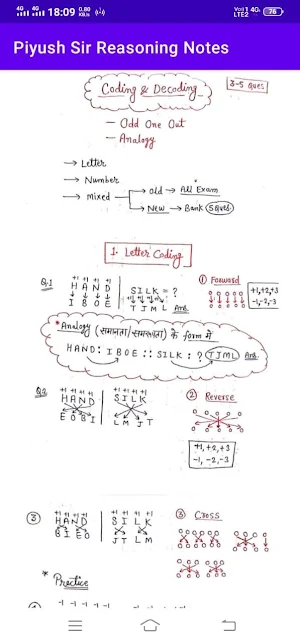 4G 4G 18:09 0.80 KB/s Vo) 1 4G LTE2 76
Piyush Sir Reasoning Notes
Coding & Decoding
3-5 Ques
– Odd One Out
– Analogy
→ Letter
→ Number
→ mixed → old → All Exam
→ New → Bank 5 Ques
1. Letter Coding
Q.1 +1 +1 +1 +1
HAND
IBOE
SILK = ?
+1 +1 +1 +1
TJML Ans.
① Forward
+1,+2,+3
-1,-2,-3
* Analogy (समानता/समरूपता) के form में
HAND : IBOE :: SILK : ? TJML Ans.
Q2 +1 +1 +1 +1
HAND
EOBI
+1 +1 +1 +1
SILK
LMJT
② Reverse
+1, +2, +3
-1, -2, -3
③ +1 +1 +1 +1
HAND
BIEO
+1 +1 +1 +1
SILK
JTLM
③ Cross
* Practice
-1 -1 -1 -1 -1